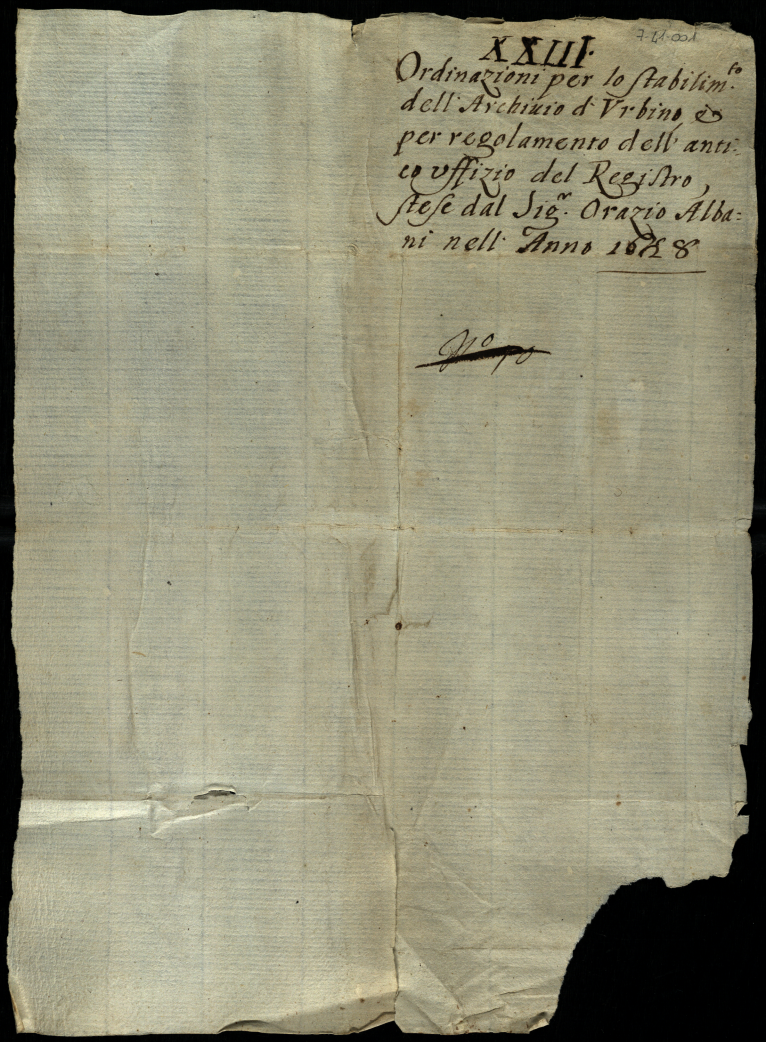 7-21-001
XXIII.
Ordinazioni per lo stabilim.to
dell' Archiuio d' Vrbino, et
per regolamento dell' anti=
co vffizio del Registro,
stese dal Sig.r Orazio Alba=
ni nell' Anno
No 10